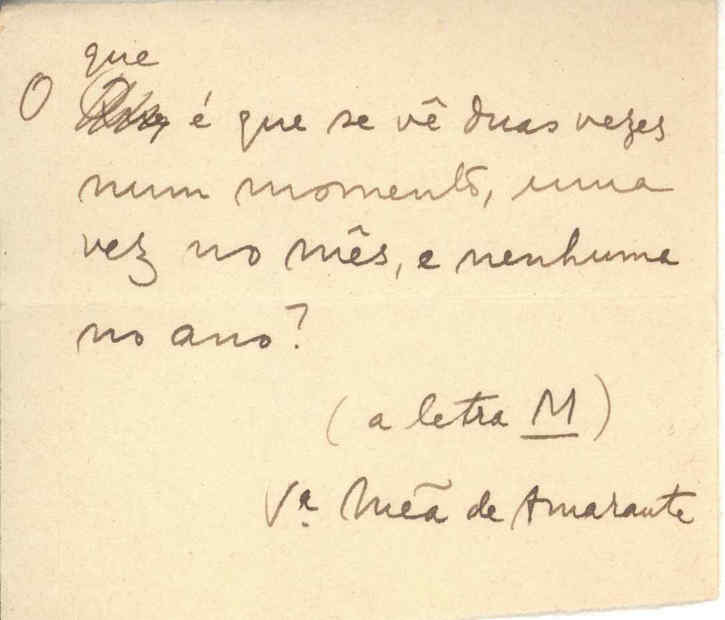 que
O é que se vê duas vezes
num momento, uma
vez no mês, e nenhuma
no ano?
(a letra M)
Vª. Meã de Amarante